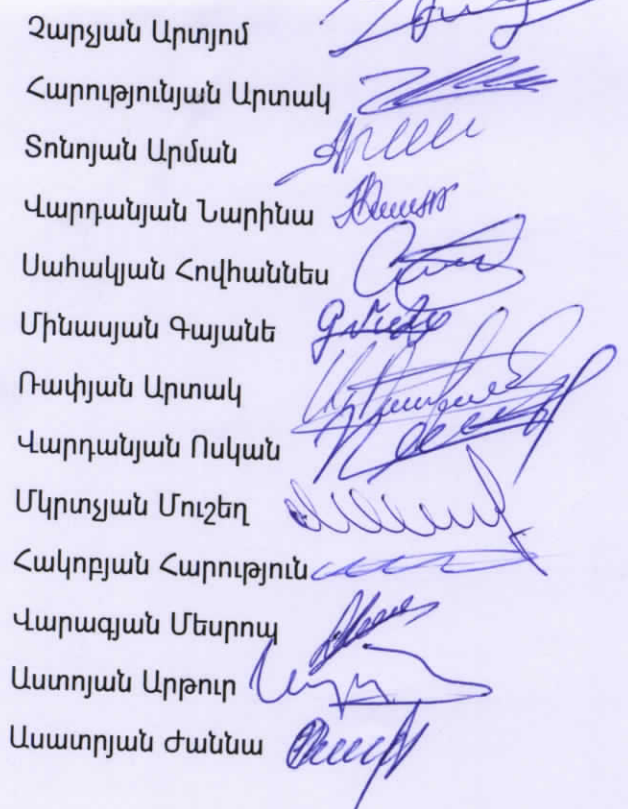 Չարչյան Արտյոմ
Հարությունյան Արտակ
Տոնոյան Արման
Վարդանյան Նարինա
Սահակյան Հովհաննես
Մինասյան Գայանե
Ռափյան Արտակ
Վարդանյան Ոսկան
Մկրտչյան Մուշեղ
Հակոբյան Հարություն
Վարագյան Մեսրոպ
Ասոյան Արթուր
Ասատրյան Ժաննա